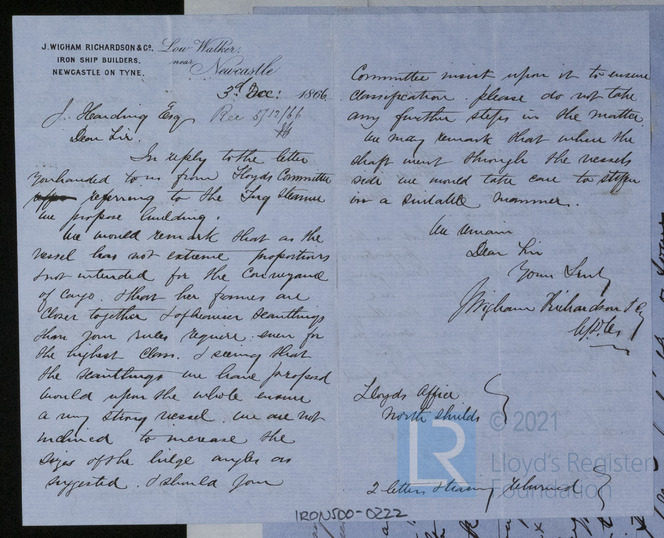 J. WIGHAM RICHARDSON & Co.
IRON SHIP BUILDERS,
NEWCASTLE ON TYNE.
Low Walker,
near Newcastle
3rd Dec: 1866
J. Harding Esq
Rec 5/12/66
Dear Sir.
In reply to the letter
you handed to us from Lloyds Committee
referring to the Tug Steamer
we propose building.
We would remark that as the
vessel has not extreme proportions
& not intended for the Conveyance
of Cargo. & that her frames are
closer together & of heavier Scantlings
than your rules require even for
the highest Class. & seeing that
the Scantlings we have proposed
would upon the whole ensure
a very strong vessel. we are not
inclined to increase the
sizes of the bilge angles as
suggested. & should your
Committee insist upon it to ensure
classification please do not take
any further steps in the matter.
We may remark that where the
shaft went through the vessels
side we would take care to stiffen
in a suitable manner.
We remain
Dear Sir
Yours
J Wigham Richardson & Co
Lloyds Office
North Shields
2 letters & tracing returned
IRON500-0222
LR
© 2021
Lloyd's Register
Foundation